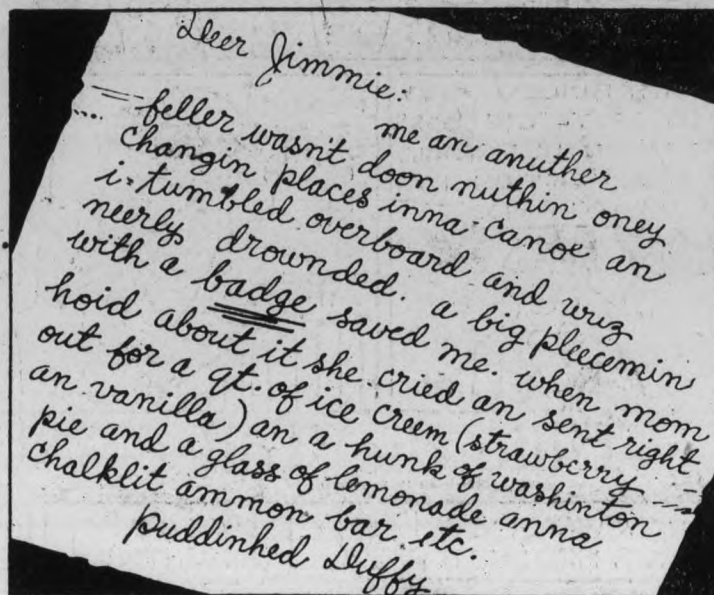 Deer Jimmie:
me an anuther
feller wasn't doon nuthin oney
changin places inna canoe an
i tumbled overboard and wuz
neerly drownded. a big pleecemin
with a badge saved me. when mom
hoid about it she cried an sent right
out for a qt. of ice creem (strawberry
an vanilla) an a hunk of washinton
pie and a glass of lemonade anna
chalklit ammon bar etc.
puddinhed Duffy